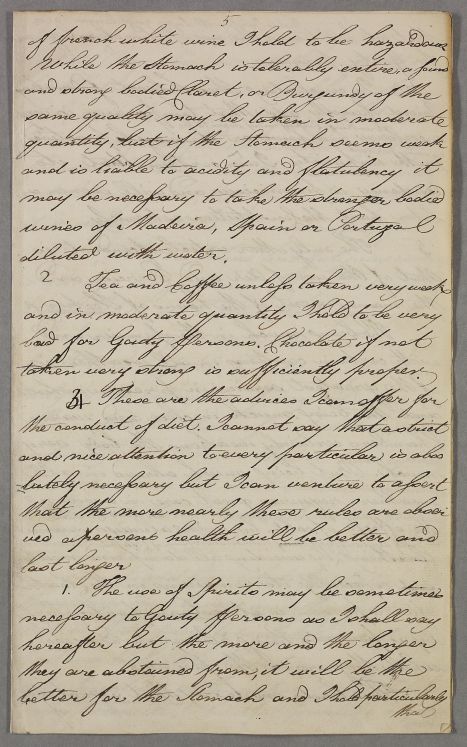 5
of french white wine I hold to be hazardous
While the Stomach is tolerably entire, a found
and strong bodied Claret, or Burgundy of the
same quality may be taken in moderate
quantity, but if the Stomach seems weak
and is liable to acidity and flatulency it
may be necessary to take the stronger bodied
wines of Madeira, Spain or Portugal
diluted with water.
2 Tea and Coffee unless taken very weak
and in moderate quantity I hold to be very
bad for Gouty Persons. Chocolate if not
taken very strong is sufficiently proper.
3 These are the advices I can offer for
the conduct of diet. I cannot say that a strict
and nice attention to every particular is abso
lutely necessary but I can venture to assert
that the more nearly these rules are obser
ved a persons health will be better and
last longer
1. The use of Spirits may be sometimes
necessary to Gouty Persons as I shall say
hereafter but the more and the longer
they are abstained from, it will be the
better for the Stomach and I hold particularly
that